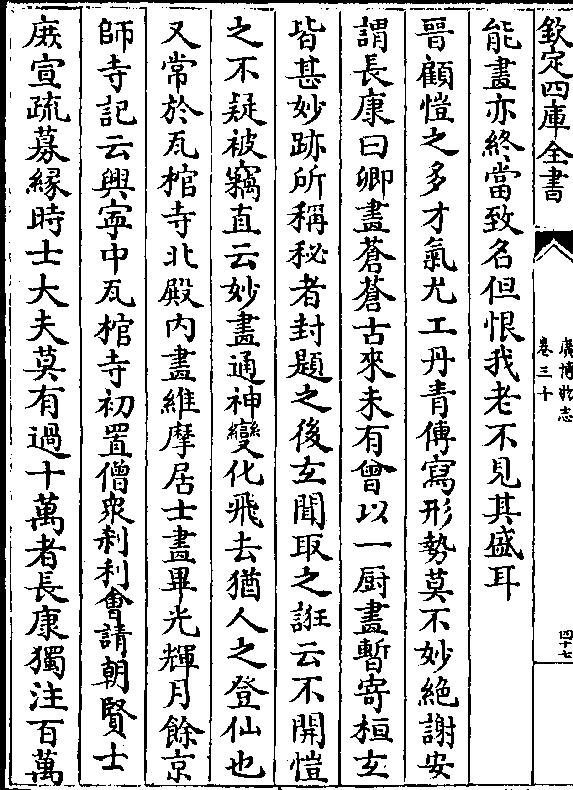 欽定四庫全書
廣博物志
卷三十
四十七
能畫亦終當致名但恨我老不見其盛耳
晉顧愷之多才氣尤工丹青傳寫形勢莫不妙絶謝安
謂長康曰卿畫蒼蒼古來未有曾以一厨畫暫寄桓玄
皆甚妙跡所稱秘者封題之後玄聞取之誑云不開愷
之不疑被竊直云妙畫通神變化飛去猶人之登仙也
又常於瓦棺寺北殿内畫維摩居士畫畢光輝月餘京
師寺記云興寧中瓦棺寺初置僧衆刹利會請朝賢士
庻宣疏募縁時士大夫莫有過十萬者長康獨注百萬